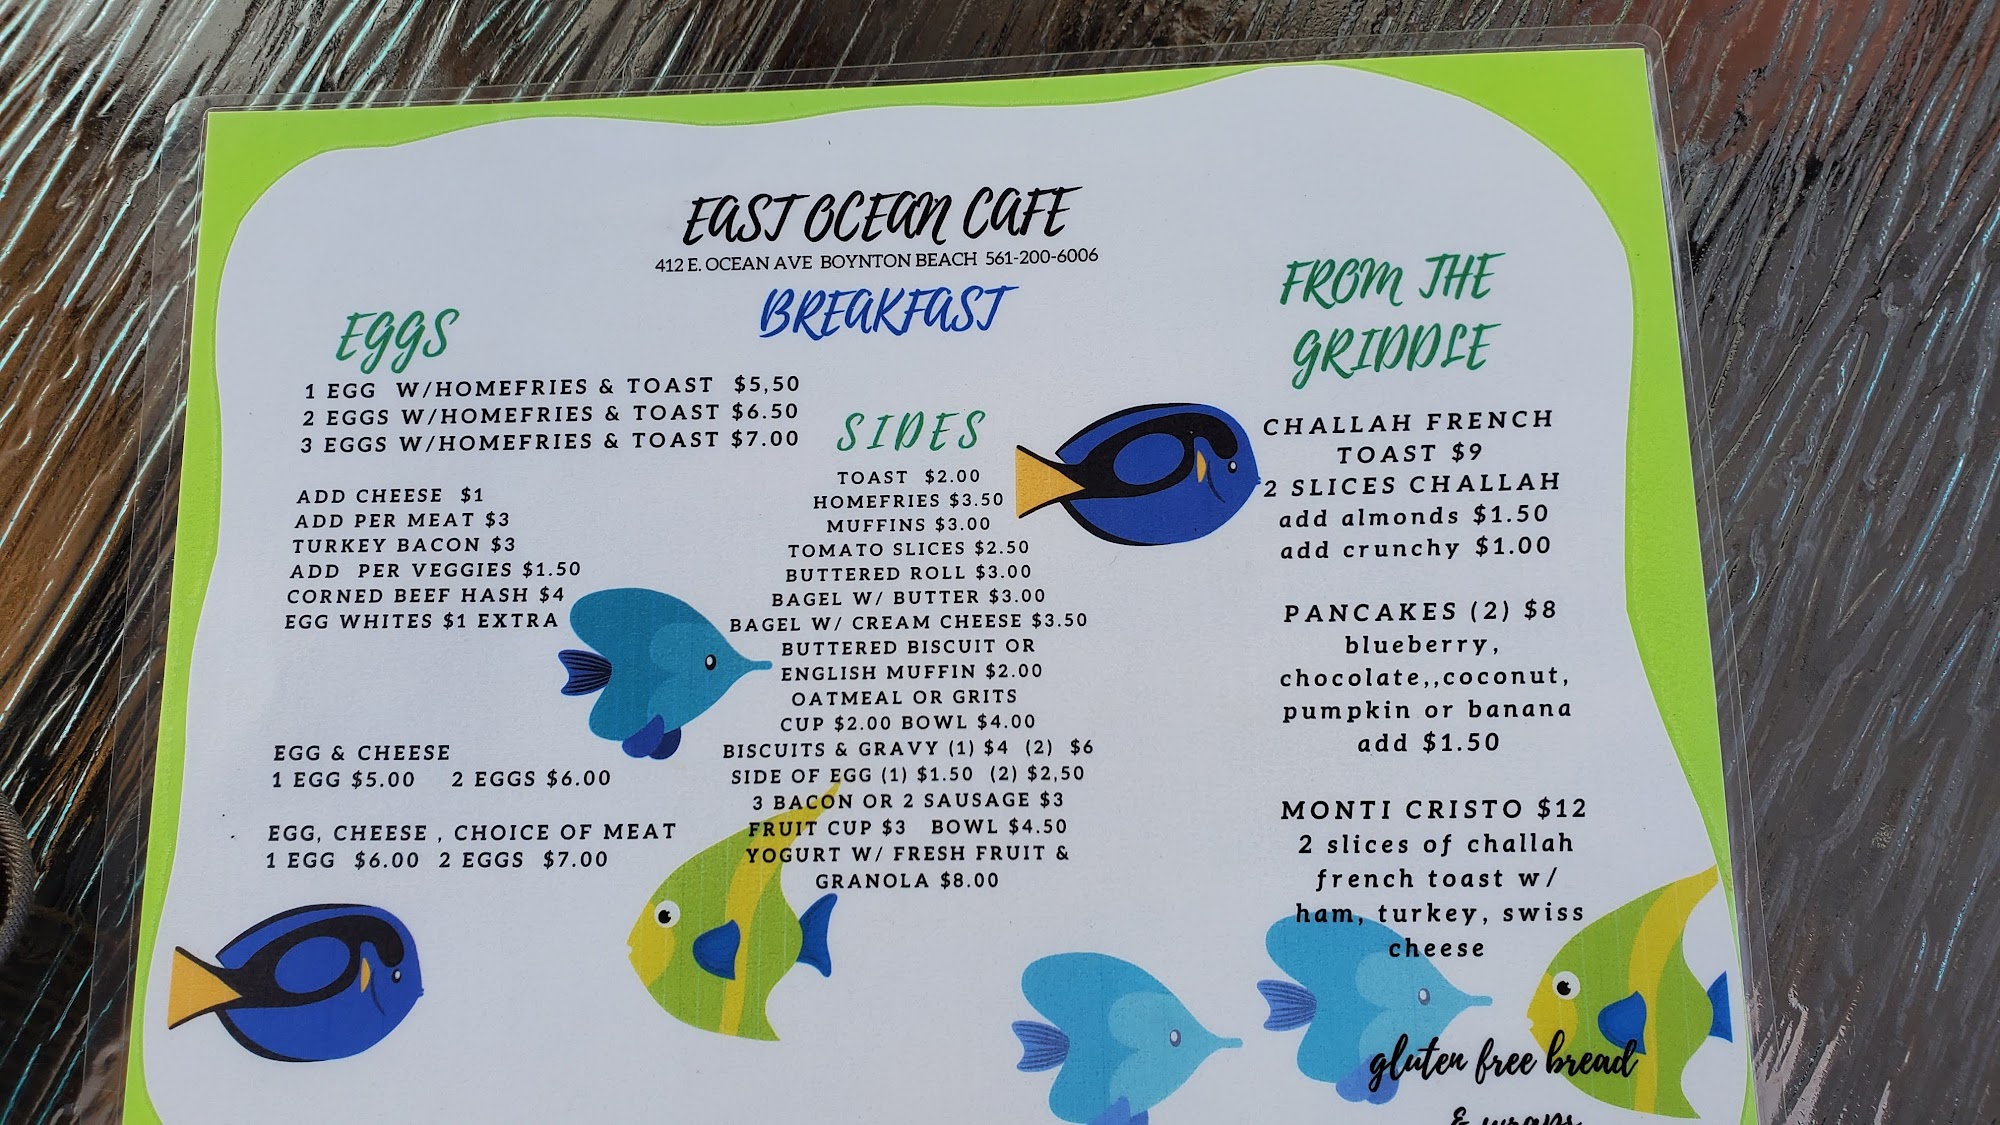 EAST OCEAN CAFE
412 E. OCEAN AVE BOYNTON BEACH 561-200-6006
BREAKFAST
EGGS
1 EGG W/HOMEFRIES & TOAST $5,50
2 EGGS W/HOMEFRIES & TOAST $6.50
3 EGGS W/HOMEFRIES & TOAST $7.00
ADD CHEESE $1
ADD PER MEAT $3
TURKEY BACON $3
ADD PER VEGGIES $1.50
CORNED BEEF HASH $4
EGG WHITES $1 EXTRA
EGG & CHEESE
1 EGG $5.00 2 EGGS $6.00
EGG, CHEESE , CHOICE OF MEAT
1 EGG $6.00 2 EGGS $7.00
SIDES
TOAST $2.00
HOMEFRIES $3.50
MUFFINS $3.00
TOMATO SLICES $2.50
BUTTERED ROLL $3.00
BAGEL W/ BUTTER $3.00
BAGEL W/ CREAM CHEESE $3.50
BUTTERED BISCUIT OR
ENGLISH MUFFIN $2.00
OATMEAL OR GRITS
CUP $2.00 BOWL $4.00
BISCUITS & GRAVY (1) $4 (2) $6
SIDE OF EGG (1) $1.50 (2) $2,50
3 BACON OR 2 SAUSAGE $3
FRUIT CUP $3 BOWL $4.50
YOGURT W/ FRESH FRUIT &
GRANOLA $8.00
FROM THE
GRIDDLE
CHALLAH FRENCH
TOAST $9
2 SLICES CHALLAH
add almonds $1.50
add crunchy $1.00
PANCAKES (2) $8
blueberry,
chocolate,,coconut,
pumpkin or banana
add $1.50
MONTI CRISTO $12
2 slices of challah
french toast w/
ham, turkey, swiss
cheese
gluten free bread
& wraps